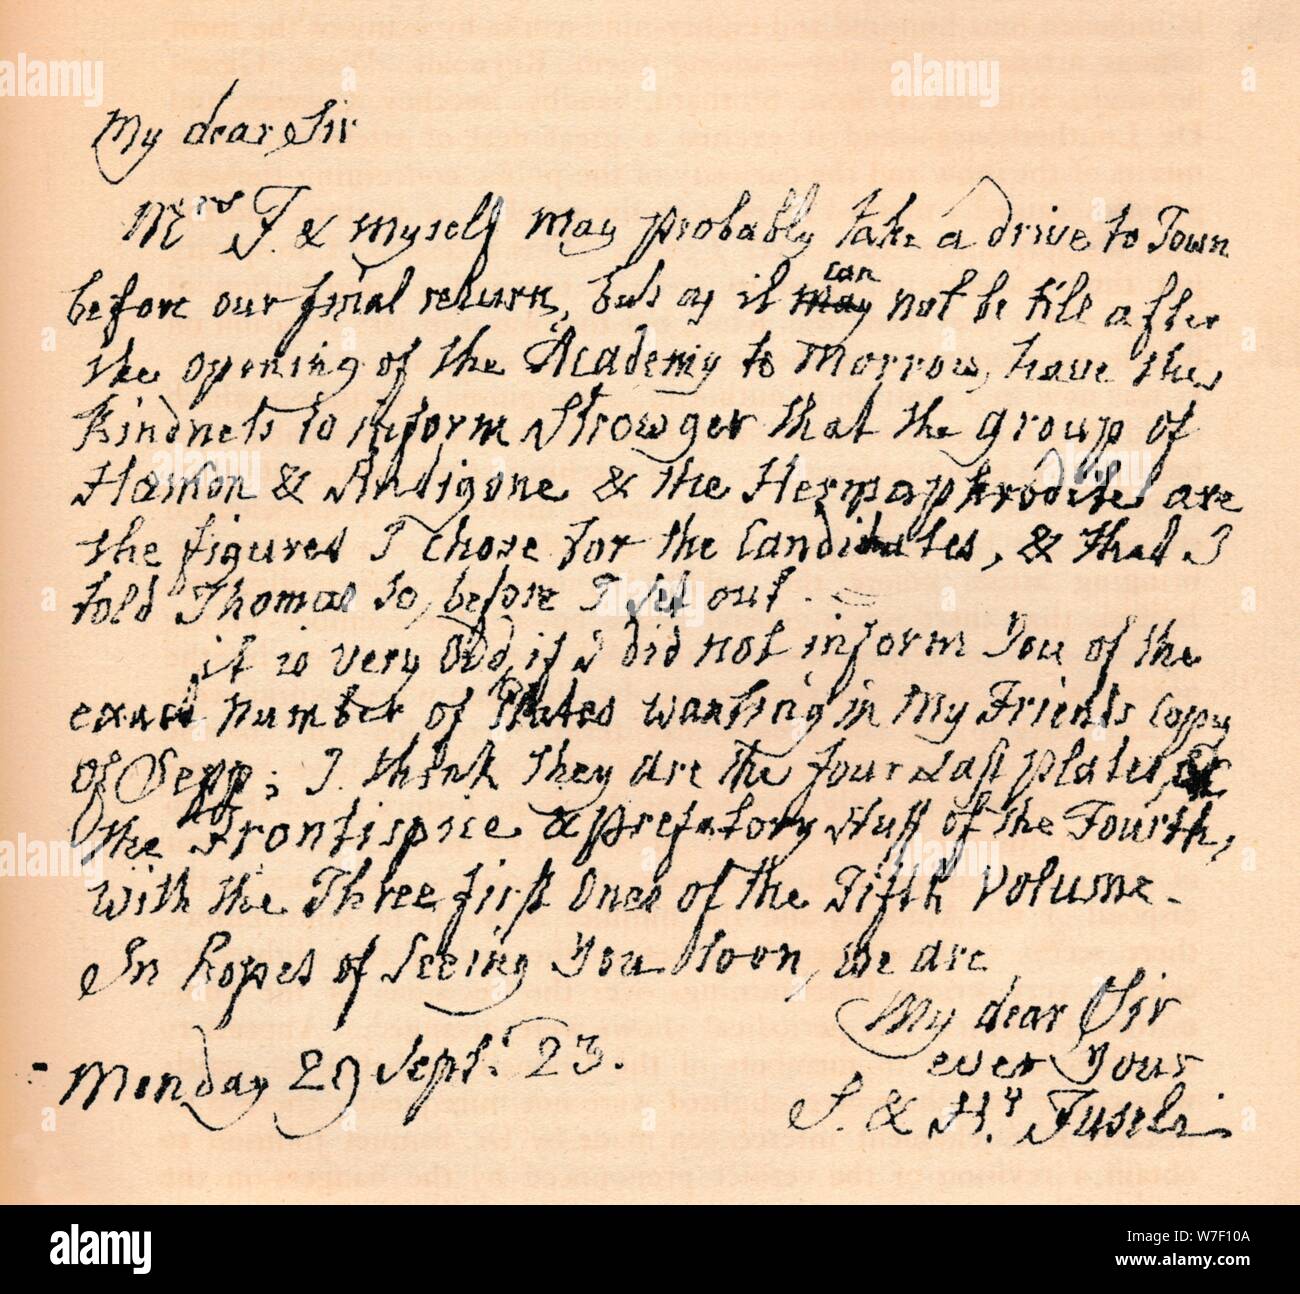 My dear Sir
Mrs F. & myself may probably take a drive to Town
before our final return, but as it may can not be till after
the opening of the Academy to Morrow, have the
Kindness to inform Strowger that the group of
Hæmon & Antigone & the Hermaphrodite are
the figures I chose for the Candidates, & that I
told Thomas so, before I set out.
it is very Odd, if I did not inform You of the
exact number of Plates wanting in My Friends Copy
of Sepp; I think they are the four last plates, &
the Frontispice & prefatory stuff of the Fourth,
with the Three first Ones of the Fifth Volume.
In hopes of seeing You soon, we are
My dear Sir
ever Your
S. & Hy. Fuseli
Monday 29 Sept. 23.
alamy
Image ID: W7F10A
www.alamy.com